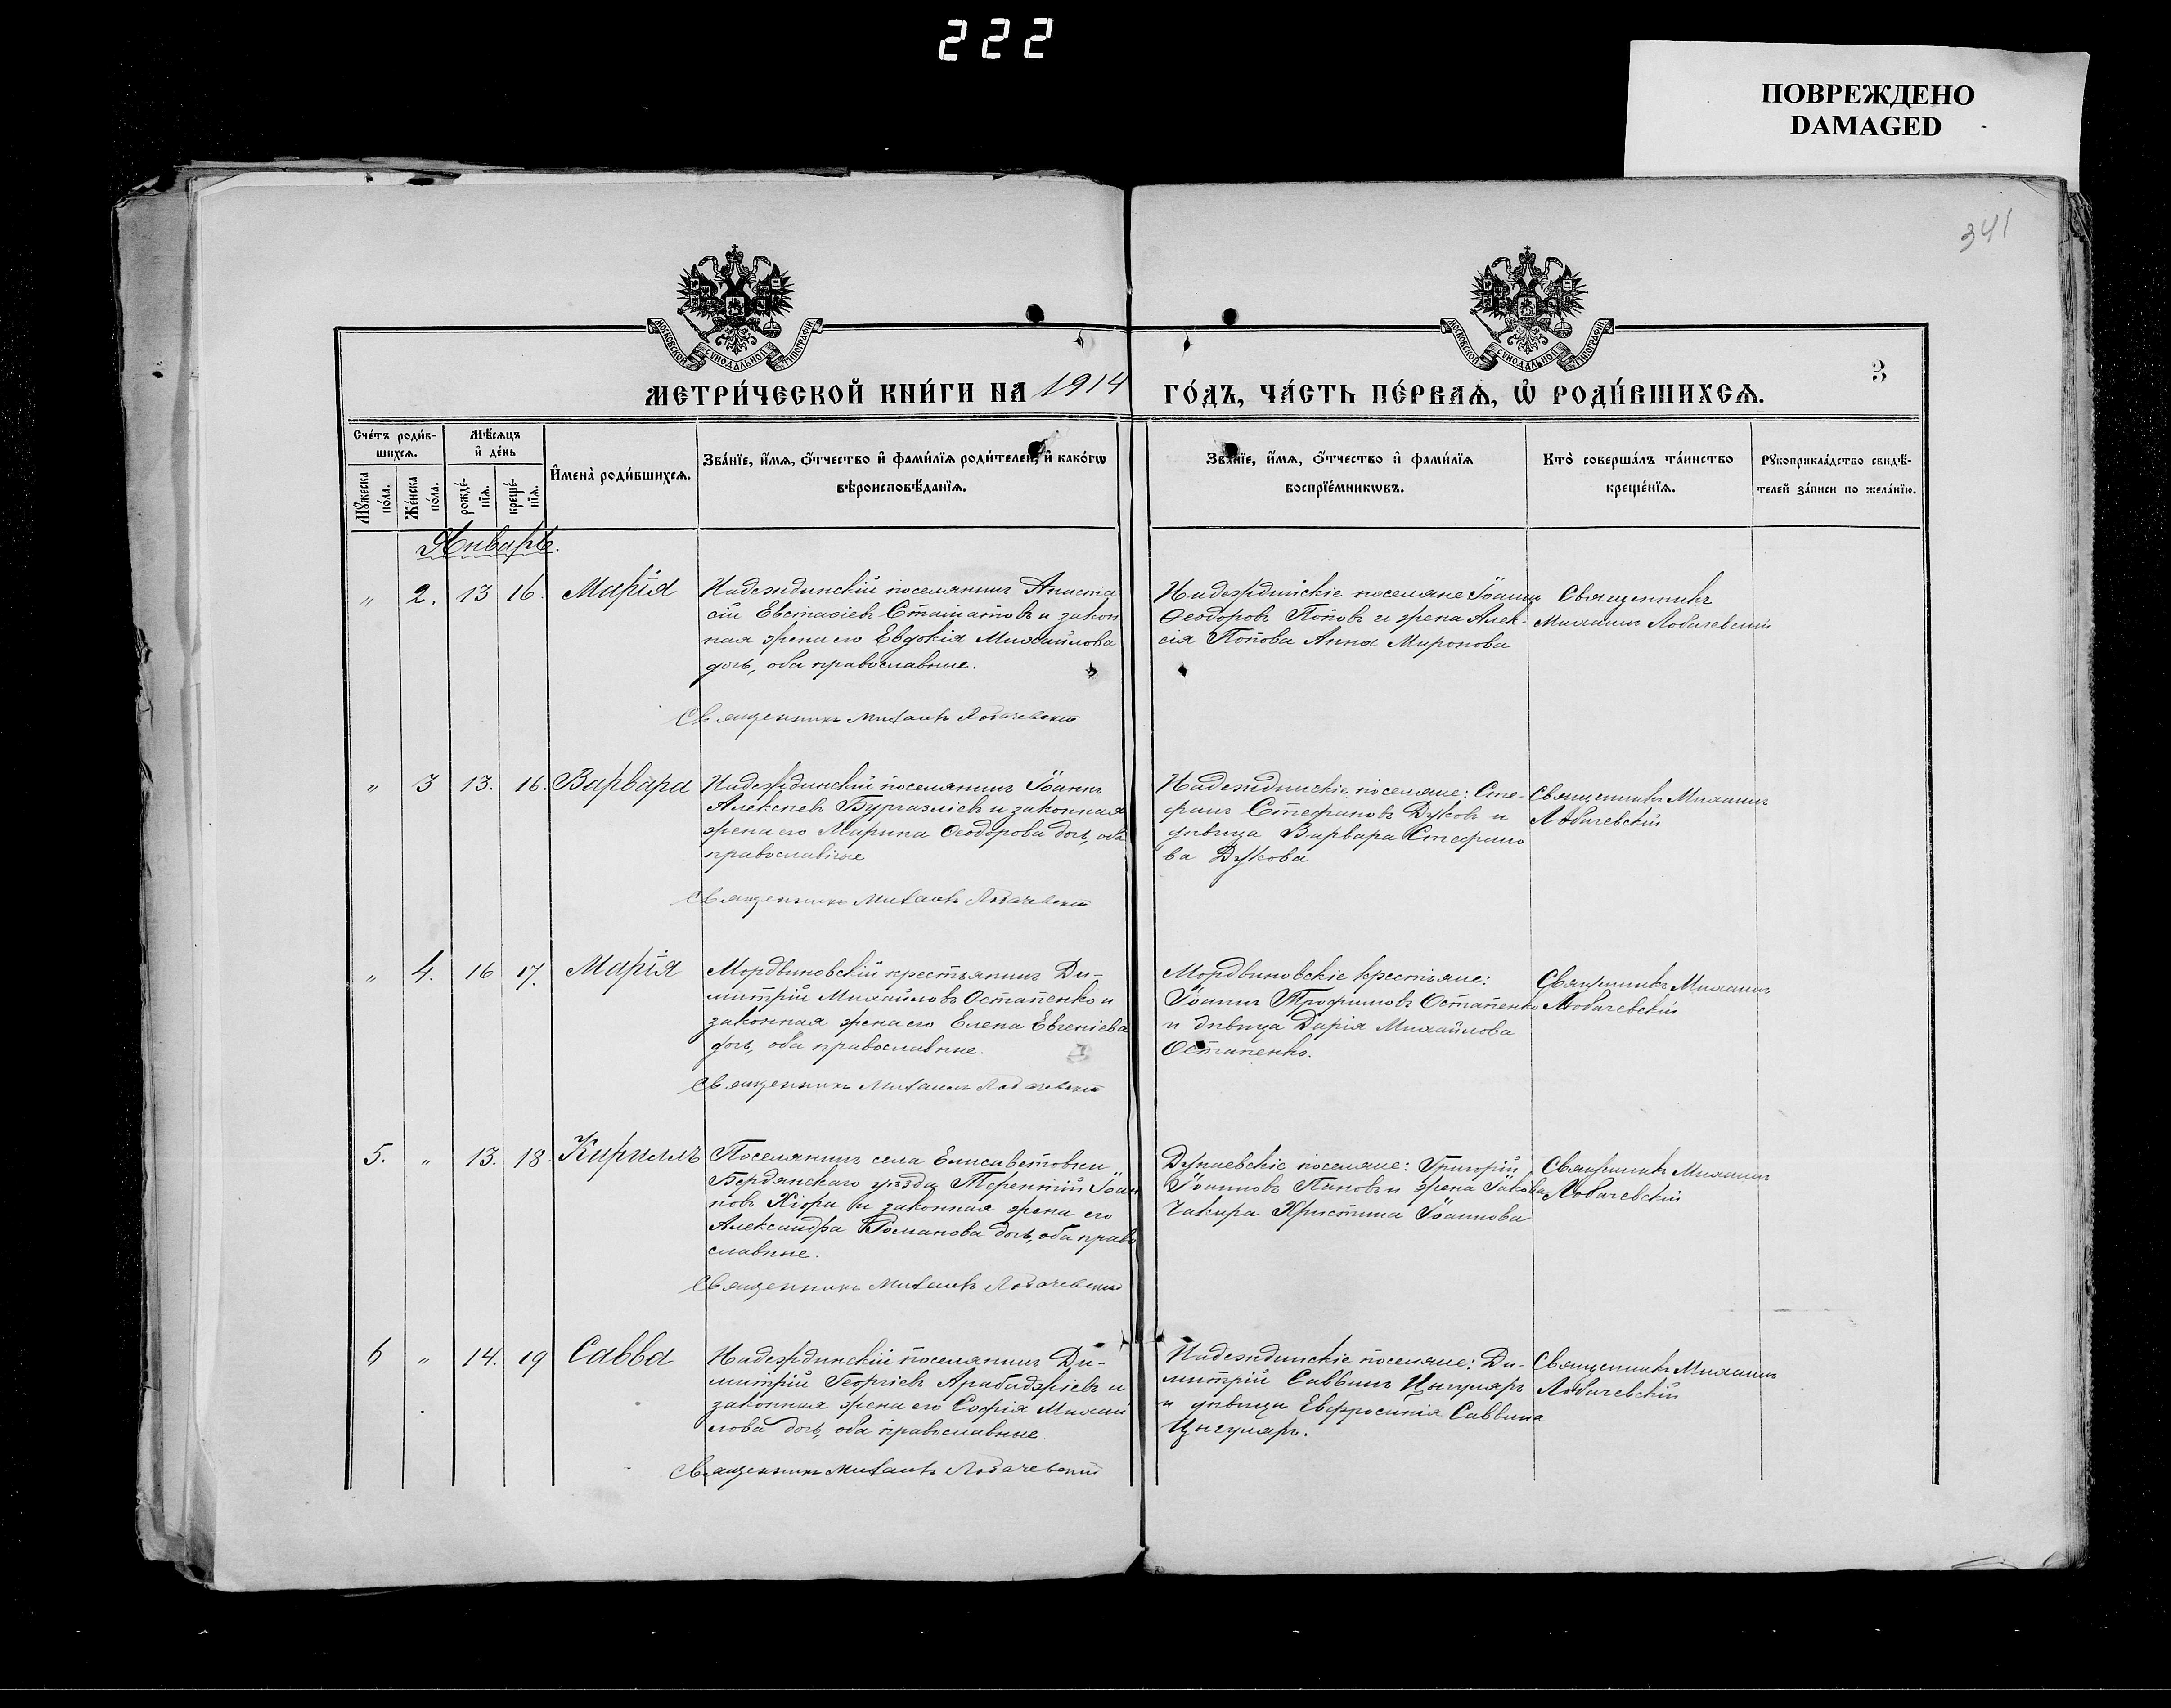 222
ПОВРЕЖДЕНО
DAMAGED
341
МОСКОВСКОЙ СѴНОДАЛЬНОЙ ТИПОГРАФІИ
МОСКОВСКОЙ СѴНОДАЛЬНОЙ ТИПОГРАФІИ
3
МЕТРИ́ЧЕСКОЙ КНИ́ГИ НА 1914 ГО́ДЪ, ЧА́СТЬ ПЕ́РВАѦ, Ѽ РОДИ́ВШИХСѦ.
Сче́тъ роди́в-
шихсѧ.
Мѣ́сѧцъ
и҆ де́нь
Мꙋ́жеска по́ла.
Же́нска по́ла.
рожде́-
нїѧ.
креще́-
нїѧ.
И҆мена̀ роди́вшихсѧ.
Зва́нїе, и҆́мѧ, ѻ҆́тчество и҆ фами́лїѧ роди́телей, и҆ како́гѡ
вѣроисповѣ́данїѧ.
Зва́нїе, и҆́мѧ, ѻ҆́тчество и҆ фами́лїѧ
воспрїе́мникѡвъ.
Кто̀ соверша́лъ та́инство
креще́нїѧ.
Рꙋкоприкла́дство свидѣ́-
телей за́писи по жела́нїю.
Январь.
" 2. 13 16. Марія
Надеждинскій поселянинъ Анаста
сій Евстафіевъ Стаматовъ и закон
ная жена его Евдокія Михайлова
дочь, оба православные.
Священникъ Михаилъ Лобачевскій
Надеждинскіе поселяне Іоаннъ
Ѳеодоровъ Поповъ и жена Алек-
сія Попова Анна Миронова
Священникъ
Михаилъ Лобачевскій
" 3 13. 16. Варвара
Надеждинскій поселянинъ Іоаннъ
Алексѣевъ Бургазліевъ и законная
жена его Марина Ѳеодорова дочь, оба
православные
Священникъ Михаилъ Лобачевскій
Надеждинскіе поселяне: Сте-
фанъ Стефановъ Дуковъ и
дѣвица Варвара Стефано
ва Дукова
Священникъ Михаилъ
Лобачевскій
" 4. 16 17. Марія
Мордвиновскій крестьянинъ Ди-
митрій Михайловъ Остапенко и
законная жена его Елена Евгеніева
дочь, оба православные.
Священникъ Михаилъ Лобачевскій
Мордвиновскіе крестьяне:
Іоаннъ Трофимовъ Остапенко
и дѣвица Дарія Михайлова
Остапенко.
Священникъ Михаилъ
Лобачевскій
5. " 13. 18. Кириллъ
Поселянинъ села Елисаветовки
Бердянскаго уѣзда Терентій Іоан
новъ Кіора и законная жена его
Александра Романова дочь, оба право
славные.
Священникъ Михаилъ Лобачевскій
Дунаевскіе поселяне: Григорій
Іоанновъ Пановъ и жена Іакова
Чакира Христина Іоаннова
Священникъ Михаилъ
Лобачевскій
6 " 14. 19 Савва
Надеждинскій поселянинъ Ди-
митрій Георгіевъ Арабаджіевъ и
законная жена его Софія Михай
лова дочь, оба православные.
Священникъ Михаилъ Лобачевскій
Надеждинскіе поселяне: Ди-
митрій Саввинъ Цынгуляръ
и дѣвица Евфросинія Саввина
Цынгуляръ.
Священникъ Михаилъ
Лобачевскій